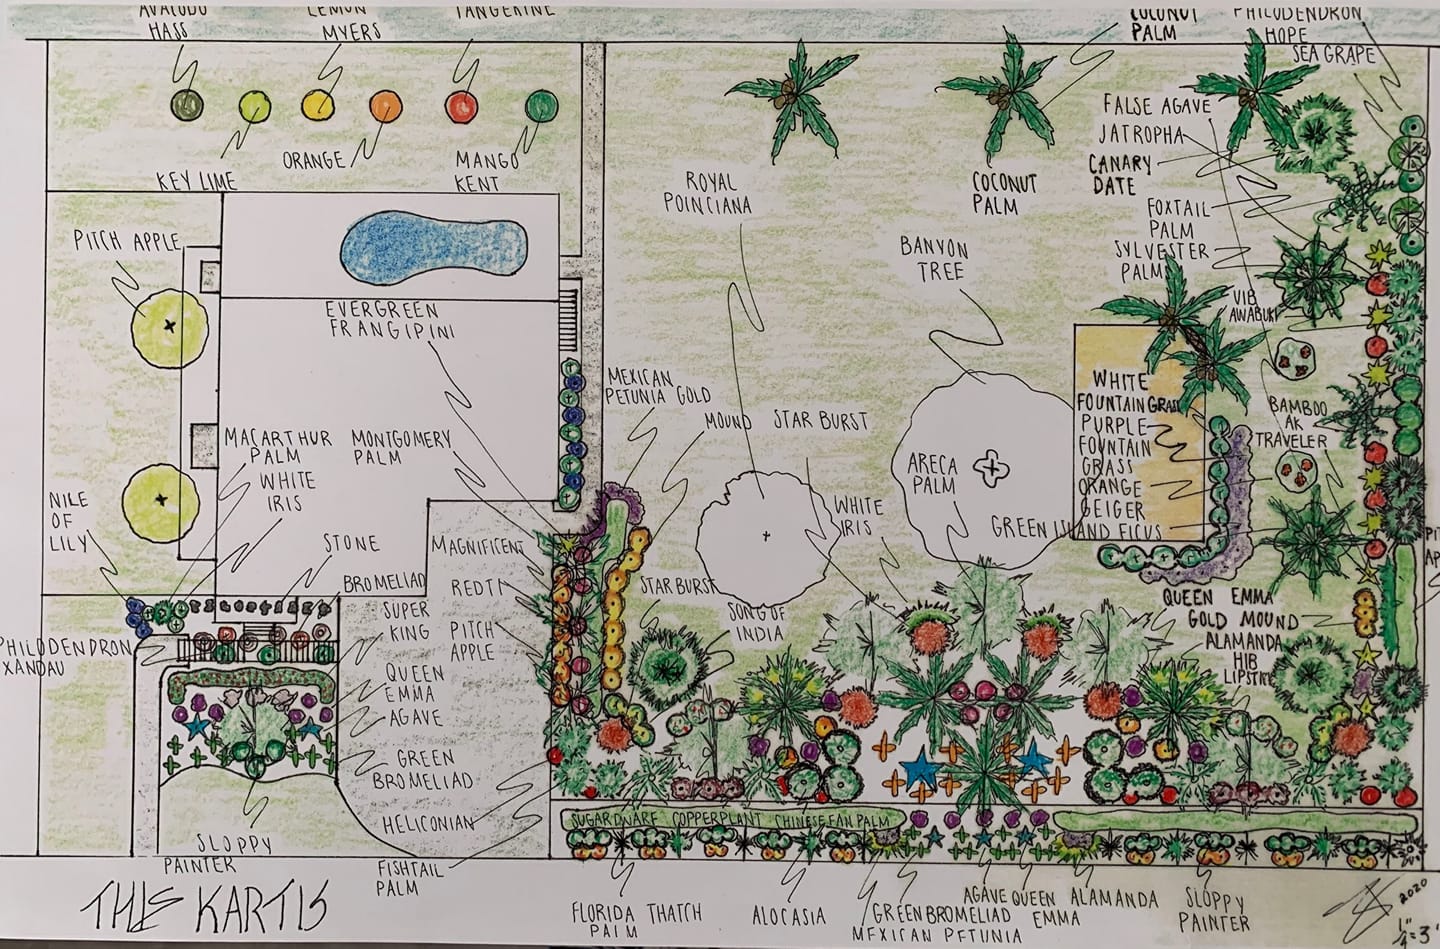 AVACODO
HASS
LEMON
MYERS
TANGERINE
COCONUT
PALM
PHILODENDRON
HOPE
SEA GRAPE
KEY LIME
ORANGE
MANGO
KENT
FALSE AGAVE
JATROPHA
CANARY
DATE
FOXTAIL
PALM
SYLVESTER
PALMS
ROYAL
POINCIANA
COCONUT
PALM
PITCH APPLE
BANYON
TREE
VIB
AWABUKI
EVERGREEN
FRANGIPINI
MEXICAN
PETUNIA GOLD
MOUND
STAR BURST
WHITE
FOUNTAIN GRASS
PURPLE
FOUNTAIN
GRASS
ORANGE
GEIGER
GREEN ISLAND FICUS
BAMBOO
AK
TRAVELER
MACARTHUR
PALM
WHITE
IRIS
MONTGOMERY
PALM
ARECA
PALM
WHITE
IRIS
NILE
OF
LILY
STONE
MAGNIFICENT
BROMELIAD
REDTI
STAR BURST
SONG OF
INDIA
SUPER
KING
PITCH
APPLE
PHILODENDRON
XANDAU
QUEEN
EMMA
AGAVE
GREEN
BROMELIAD
HELICONIAN
QUEEN EMMA
GOLD MOUND
ALAMANDA
HIB
LIPSTICK
SLOPPY
PAINTER
FISHTAIL
PALM
SUGARDWARF COPPERPLANT CHINESE FAN PALM
FLORIDA THATCH
PALM
ALOCASIA
GREEN BROMELIAD
MEXICAN PETUNIA
AGAVE QUEEN
EMMA
ALAMANDA
SLOPPY
PAINTER
THE KARTIS
2020